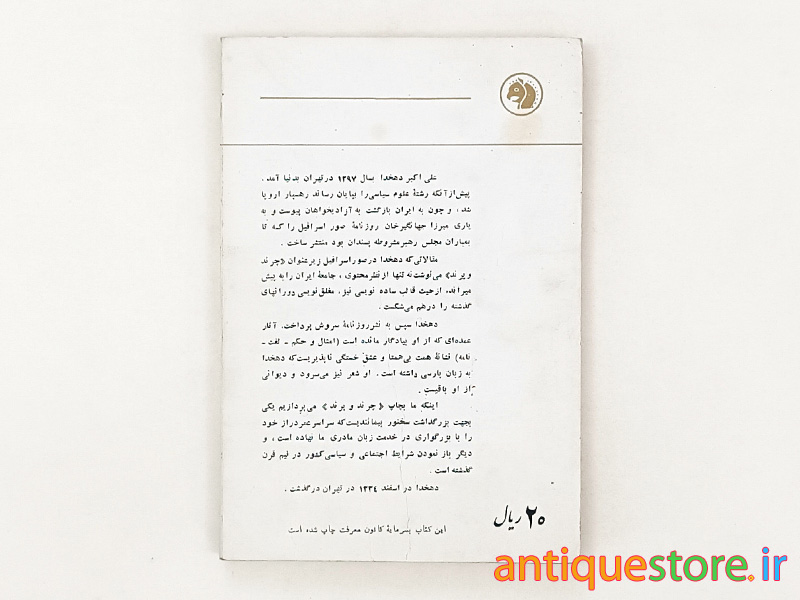 علی اکبر دهخدا بسال ۱۲۹۷ در تهران بدنیا آمد .
پیش از آنکه رشتهٔ علوم سیاسی را بپایان رساند رهسپار اروپا
شد ، و چون به ایران بازگشت به آزادیخواهان پیوست و به
یاری میرزا جهانگیرخان روزنامهٔ صور اسرافیل را که تا
بمباران مجلس رهبر مشروطه پسندان بود منتشر ساخت .
مقالاتی که دهخدا در صور اسرافیل زیر عنوان «چرند
و پرند» می‌نوشت نه تنها از نظر محتوی ، جامعهٔ ایران را به پیش
میراند، از حیث قالب ساده نویسی نیز، مغلق نویسی دورانهای
گذشته را درهم می‌شکست .
دهخدا سپس به نشر روزنامهٔ سروش پرداخت. آثار
عمده‌ای که از او بیادگار مانده است (امثال و حکم - لغت -
نامه) نشانهٔ همت بی‌همتا و عشق خستگی ناپذیریست که دهخدا
به زبان پارسی داشته است . او شعر نیز می‌سرود و دیوانی
از او باقیست .
اینکه ما بچاپ «چرند و پرند» می‌پردازیم یکی
بجهت بزرگداشت سخنور پیمانندیست که سراسر عمر دراز خود
را با بزرگواری در خدمت زبان مادری ما نهاده است ، و
دیگر باز نمودن شرایط اجتماعی و سیاسی کشور در نیم قرن
گذشته است .
دهخدا در اسفند ۱۳۳۴ در تهران درگذشت .
این کتاب بسرمایهٔ کانون معرفت چاپ شده است
۲۰ ریال
antiquestore.ir